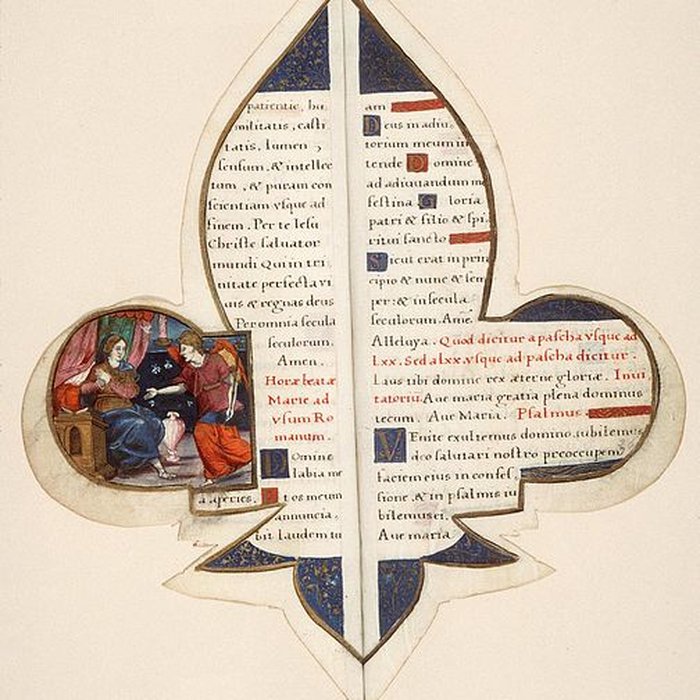 patientie, hu
militatis, casti
tatis. lumen,
sensum, & intellec
tum, & puram con
scientiam vsque ad
finem. Per te Iesu
Christe saluator
mundi Qui in tri
nitate perfecta vi
uis & regnas deus
Per omnia secula
seculorum.
Amen.
Horæ beatæ
Marie ad
vsum Ro
manum.
Domine
labia me
a aperies. Et os meum
annuncia,
bit laudem tu
am
Deus in adiu,
torium meum in
tende Domine
ad adiuuandum me
festina Gloria
patri & filio & spi,
ritui sancto
Sicut erat in prin
cipio & nunc & sem
per: & in secula
seculorum. Ame.
Alleluya. Quod dicitur a pascha vsque ad
lxx. Sed a lxx. vsque ad pascha dicitur.
Laus tibi domine rex æterne gloriæ. Inui
tatoriū. Aue maria gratia plena dominus
tecum. Aue Maria. Psalmus
VEnite exultemus domino, iubilemus
deo salutari nostro preoccupem
faciem eius in confes,
sione, & in psalmis iu
bilemus ei.
Aue maria